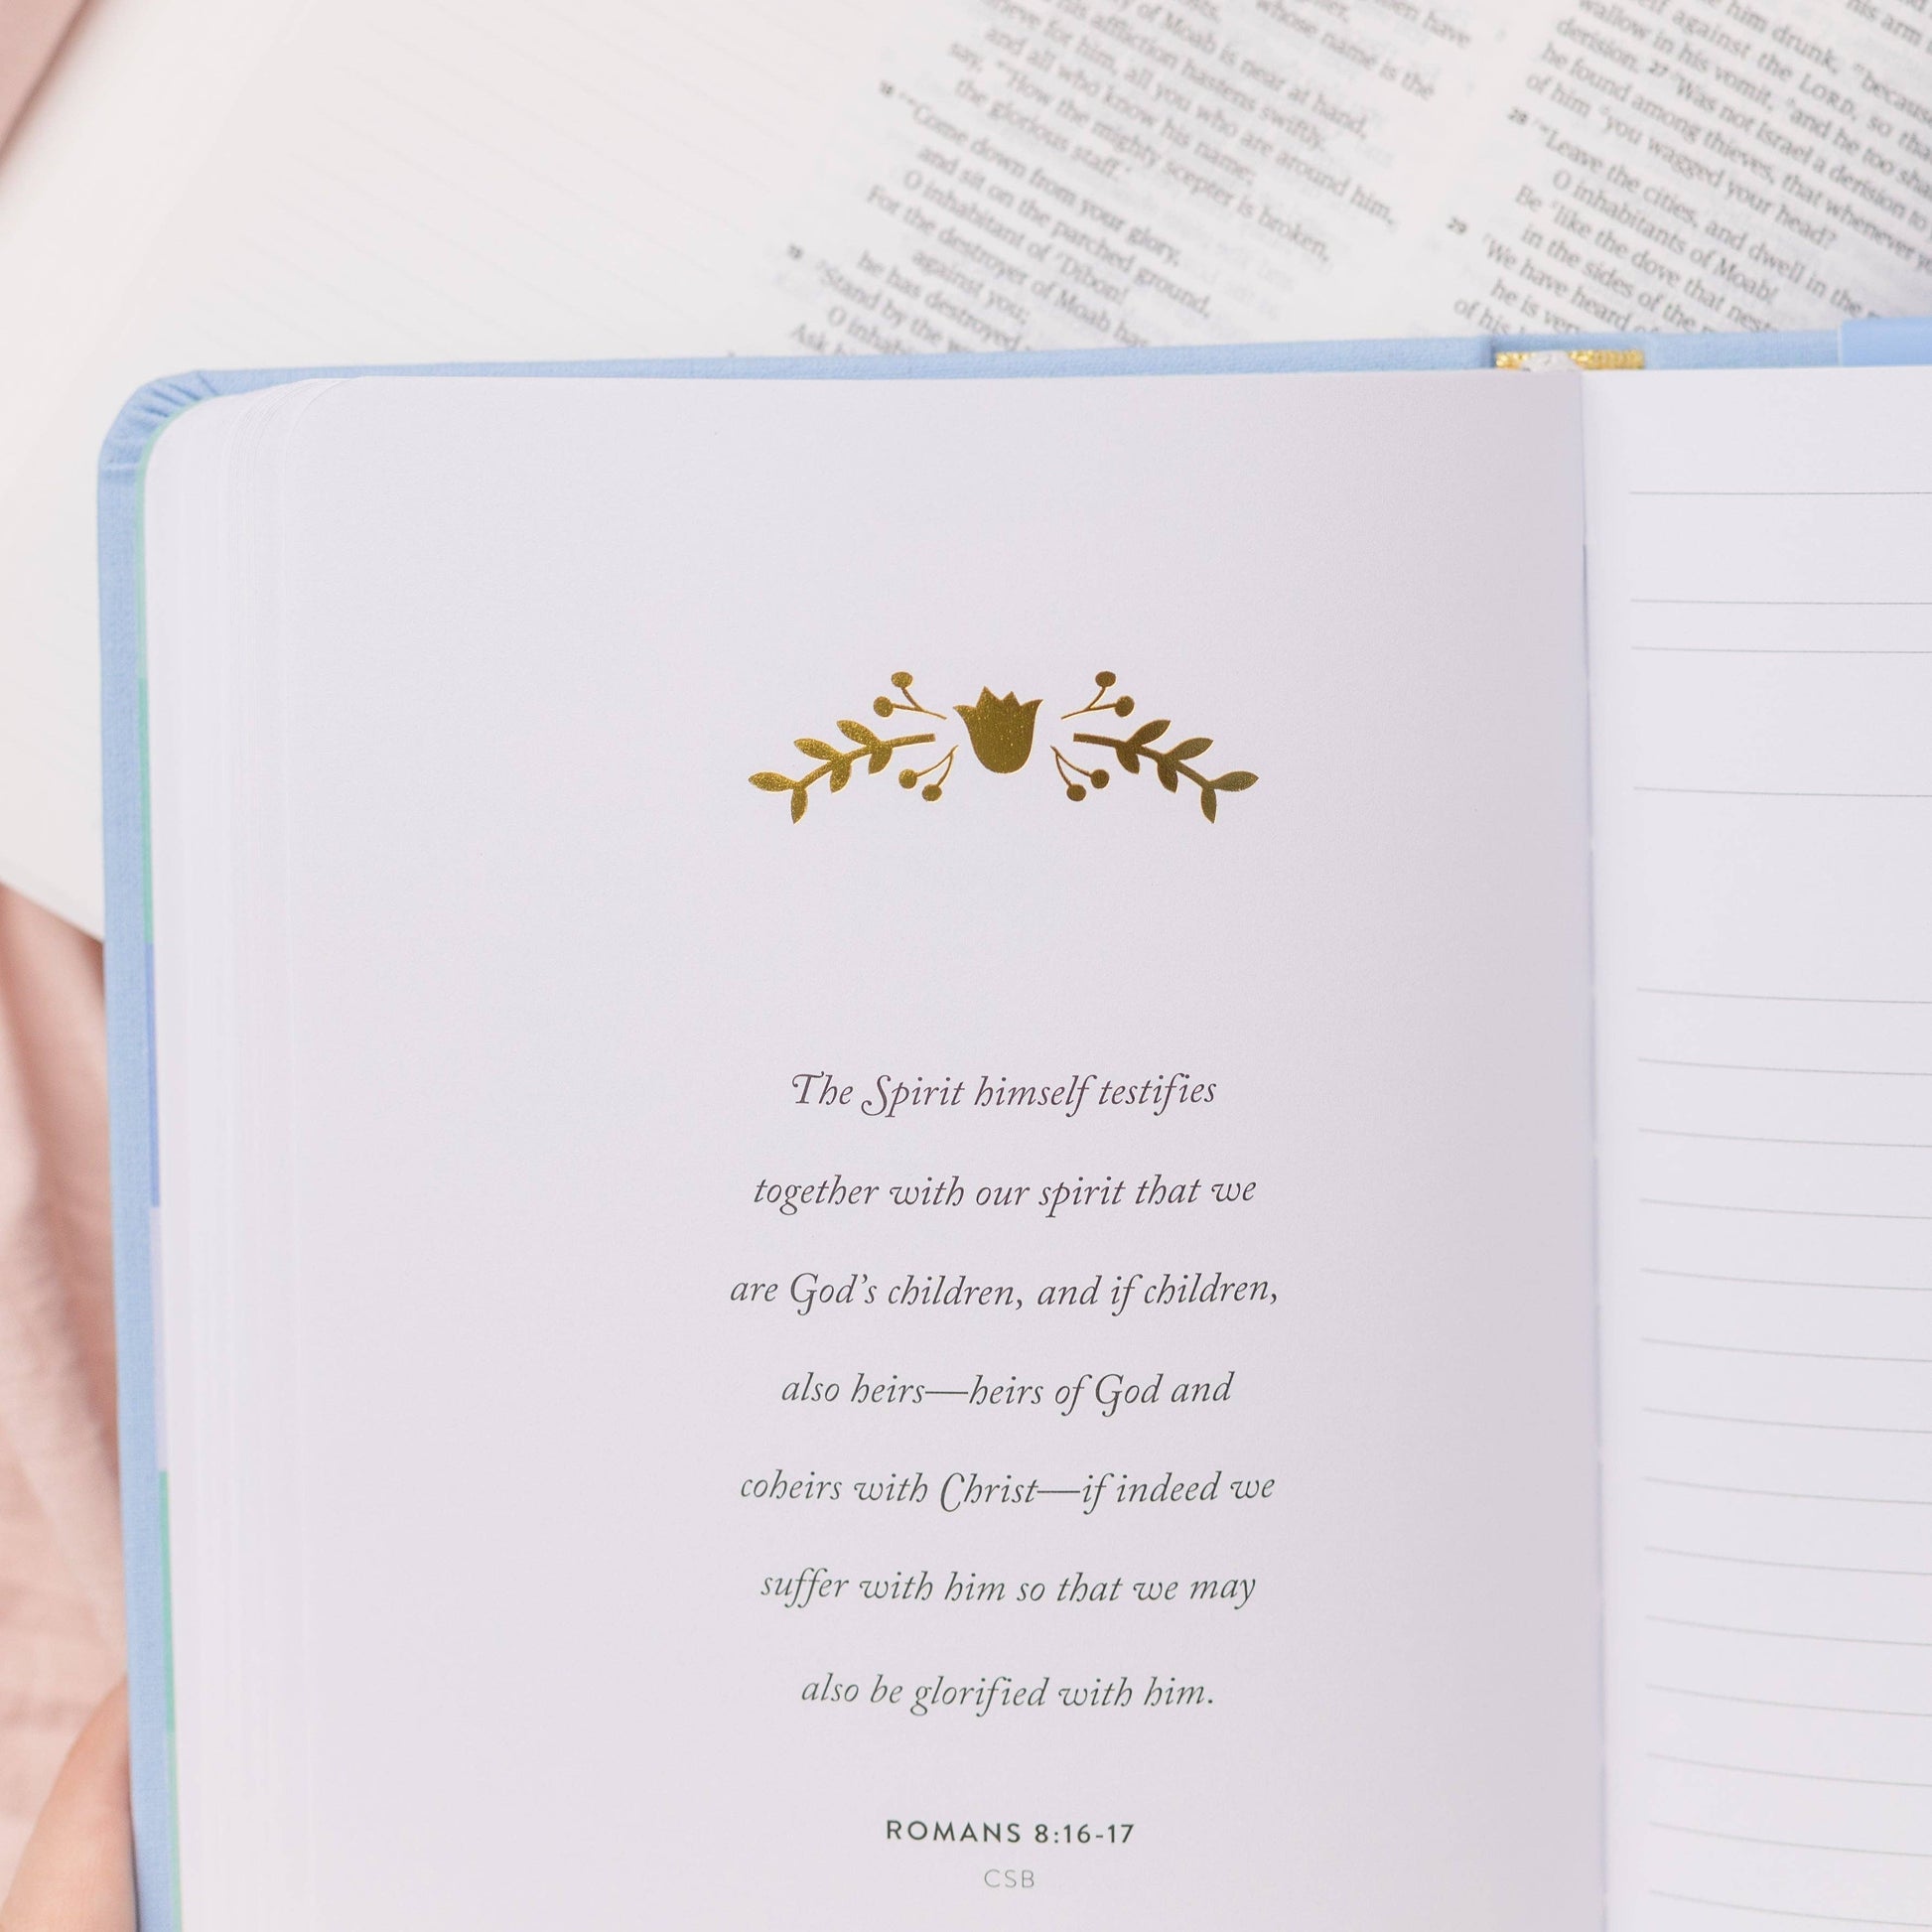 whose name is the
of Moab is near at hand,
his affliction hastens swiftly.
for him, all you who are around him,
and all who know his name;
say, "How the mighty scepter is broken,
the glorious staff."
18 "Come down from your glory,
and sit on the parched ground,
O inhabitant of Dibon!
For the destroyer of Moab has
against you;
he has destroyed
19 "Stand by the
O
Ask
him drunk, because
against the LORD, so that
wallow in his vomit, and he too
derision. 27 Was not Israel a derision to
he found among thieves, that whenever
of him you wagged your head?
28 "Leave the cities, and dwell in the
O inhabitants of Moab!
Be like the dove that
in the sides of the
29 We have heard of
he is very
of his
his arm
The Spirit himself testifies
together with our spirit that we
are God's children, and if children,
also heirs—heirs of God and
coheirs with Christ—if indeed we
suffer with him so that we may
also be glorified with him.
ROMANS 8:16-17
CSB